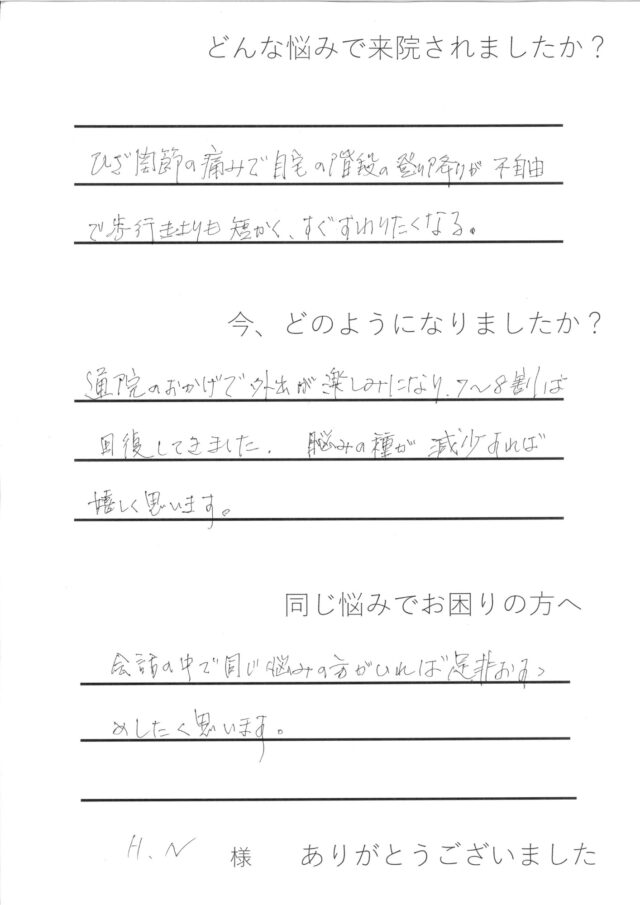 どんな悩みで来院されましたか？
ひざ関節の痛みで自宅の階段の登り降りが不自由
で歩行距離も短かく、すぐすわりたくなる。
今、どのようになりましたか？
通院のおかげで外出が楽しみになり、7〜8割は
回復してきました。 悩みの種が減少すれば
嬉しく思います。
同じ悩みでお困りの方へ
会話の中で同じ悩みの方がいれば是非おすゝ
めしたく思います。
H.N 様 ありがとうございました